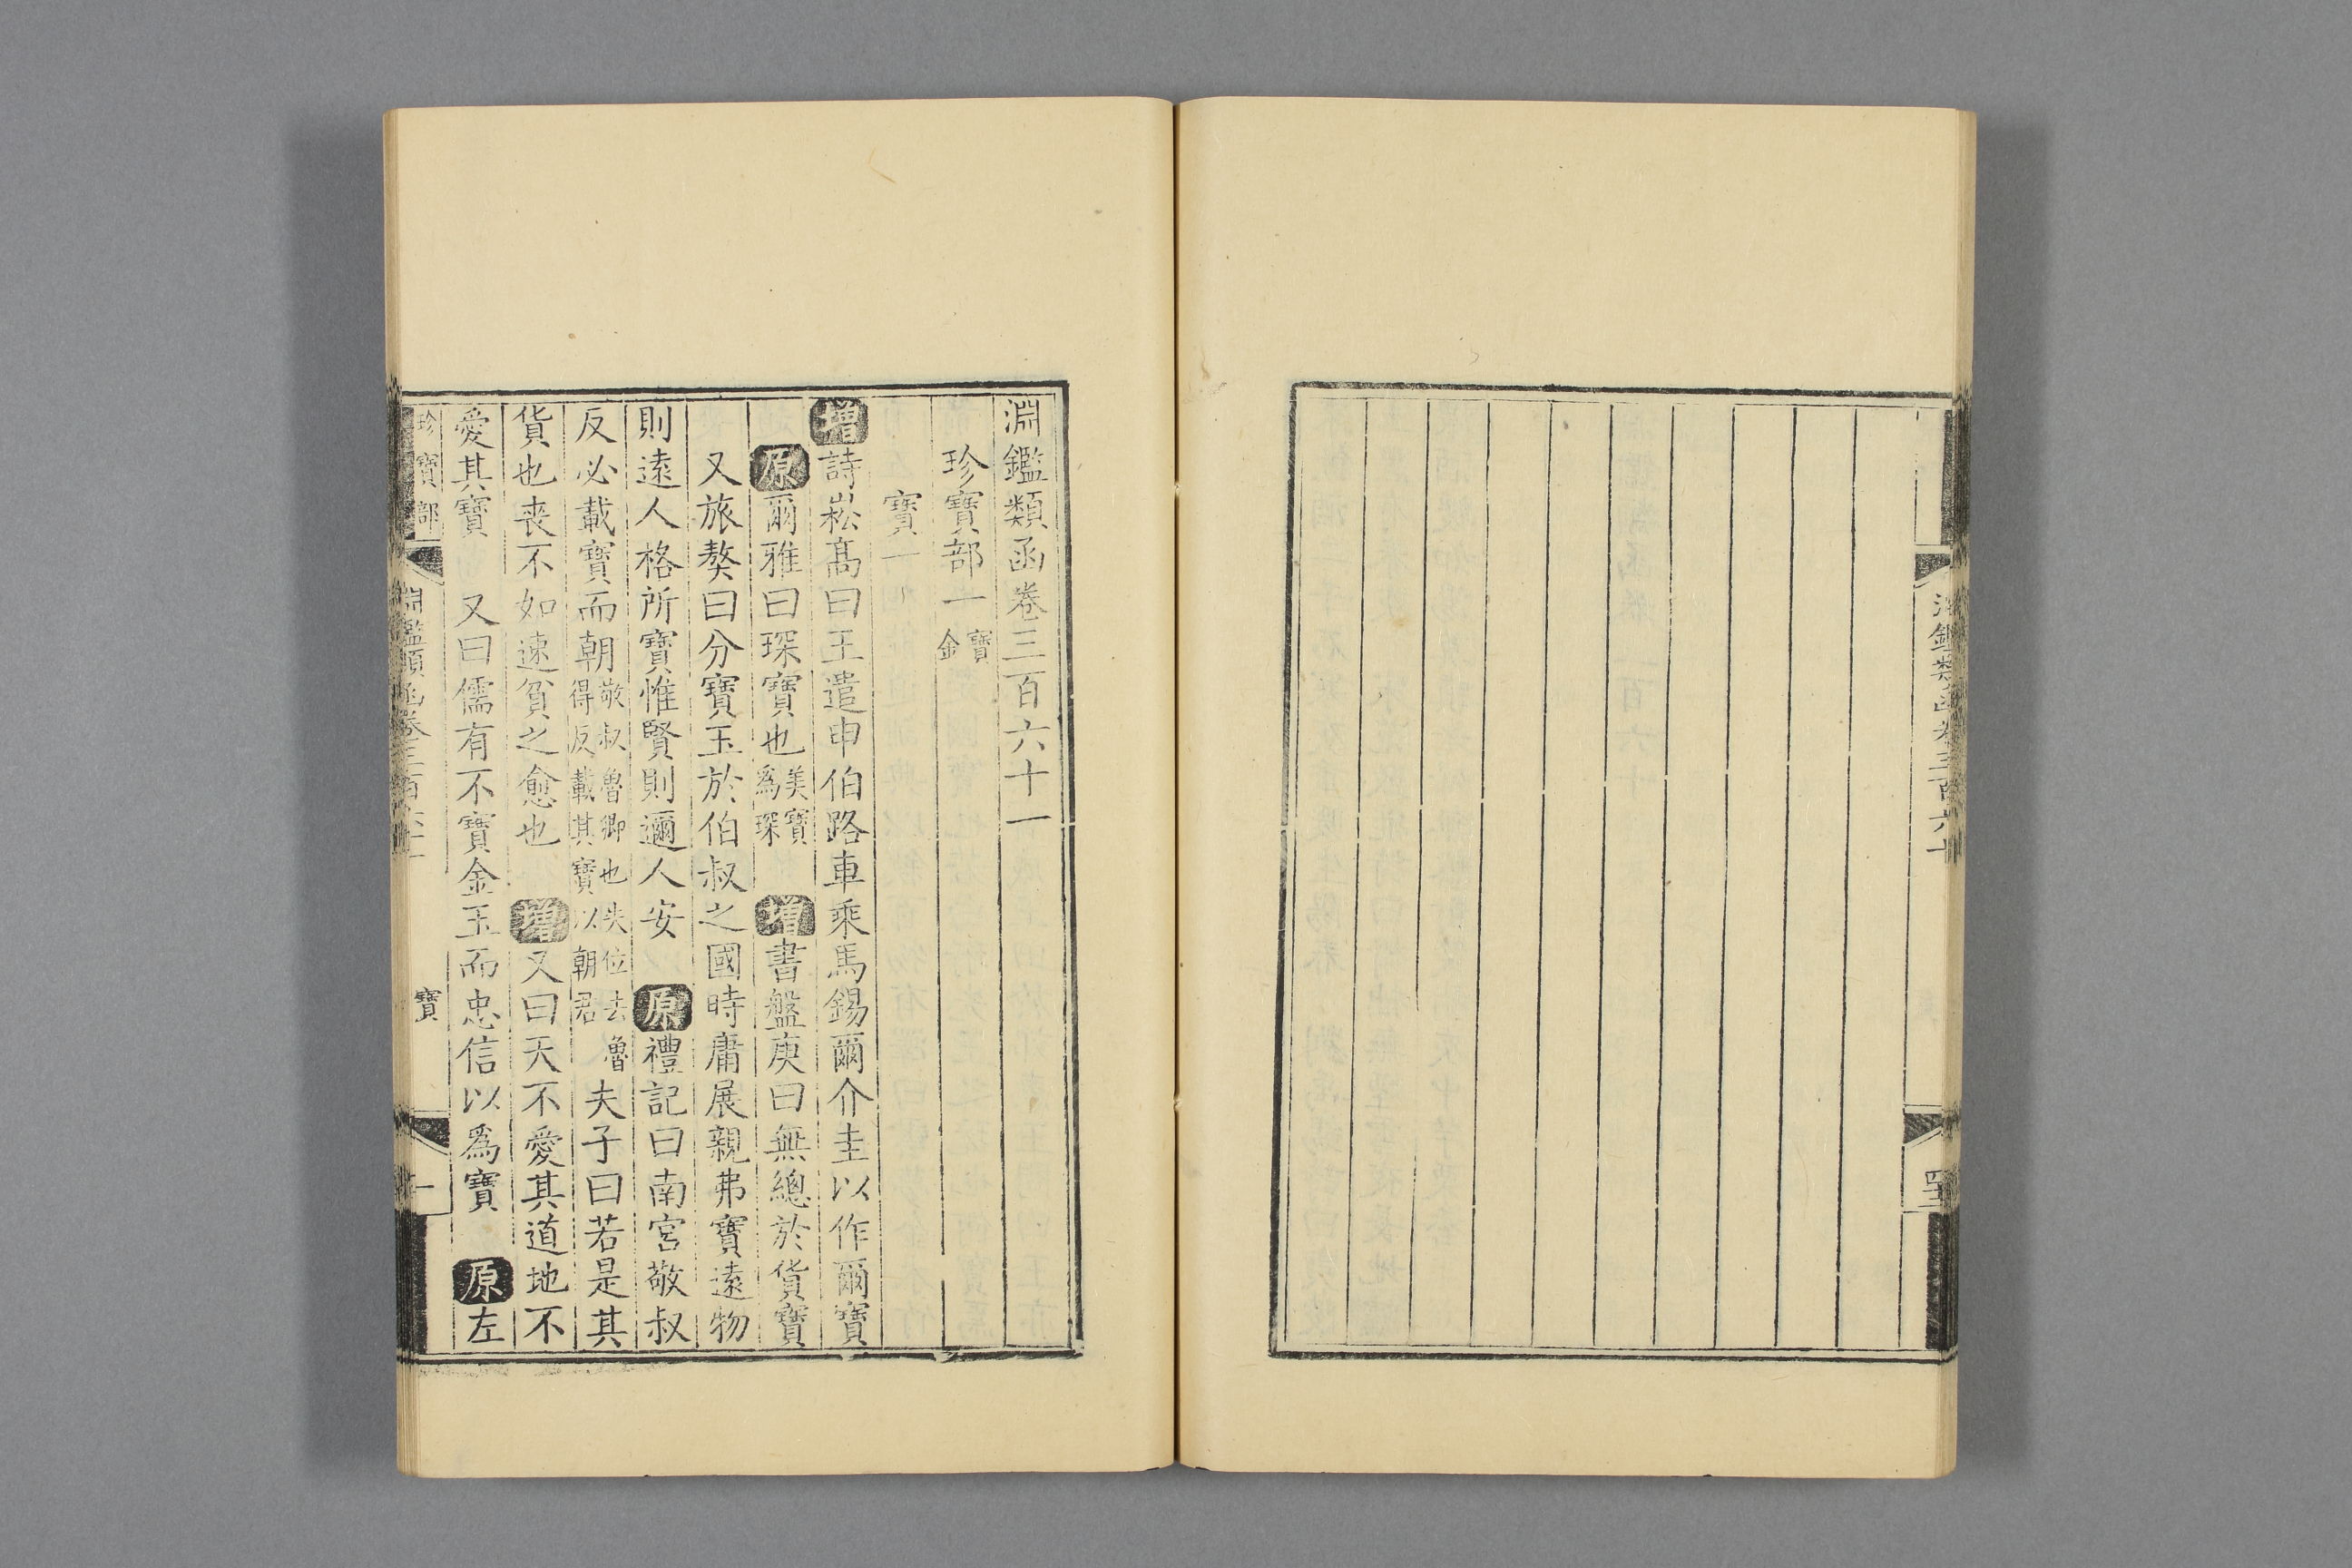 淵鑑類函卷三百六十
淵鑑類函卷三百六十一
珍寶部一寶金
寶一
增詩崧高曰王遣申伯路車乘馬錫爾介圭以作爾寶
原爾雅曰琛寶也美寶爲琛增書盤庚曰無總於貨寶
又旅獒曰分寶玉於伯叔之國時庸展親弗寶遠物
則遠人格所寶惟賢則邇人安原禮記曰南宮敬叔
反必載寶而朝敬叔魯卿也失位去魯得反載其寶以朝君夫子曰若是其
貨也喪不如速貧之愈也增又曰天不愛其道地不
愛其寶又曰儒有不寶金玉而忠信以爲寶原左
珍寶部
淵鑑類函卷三百六十一
寶
一